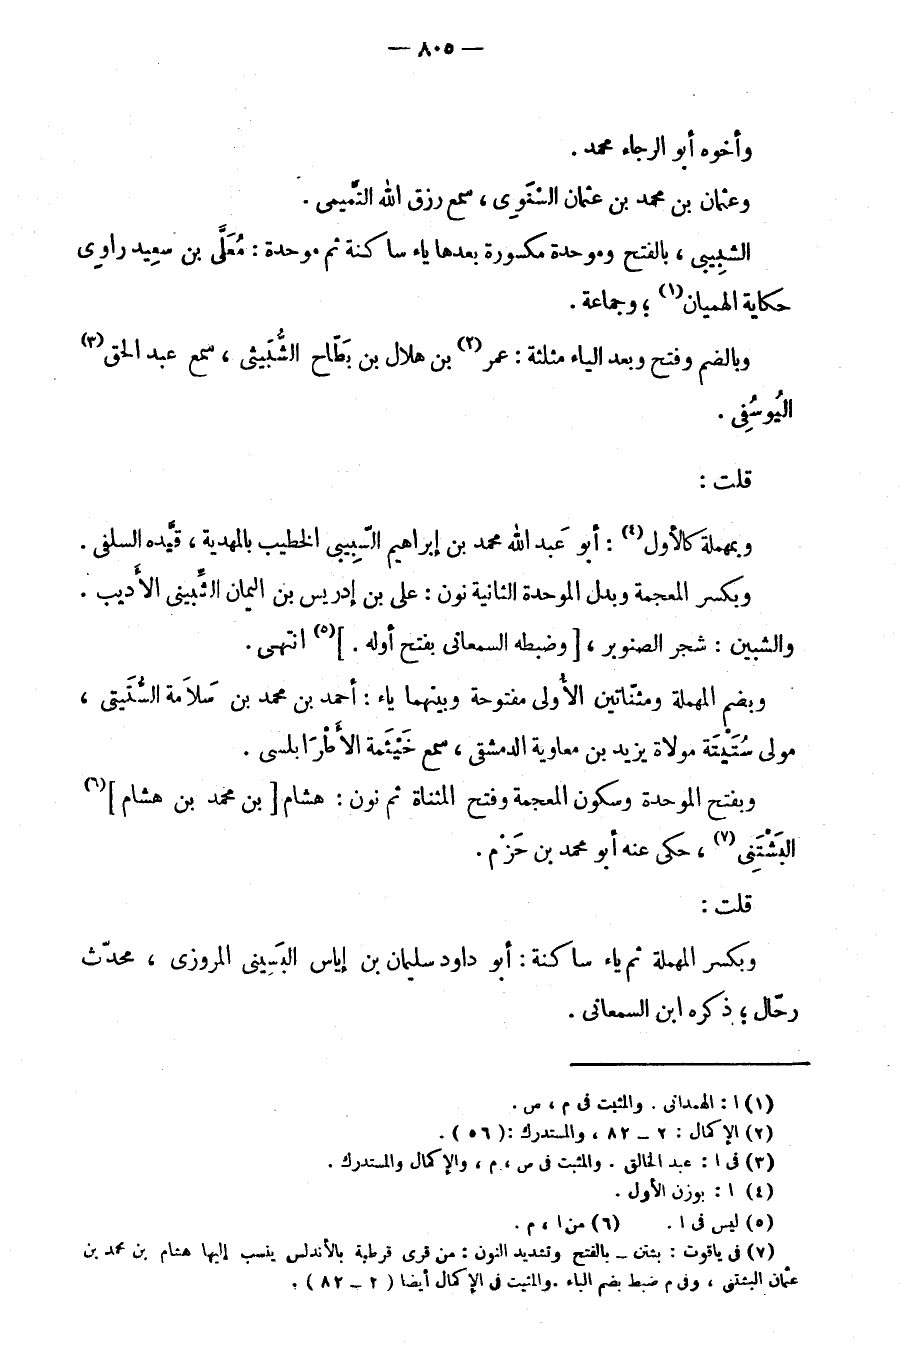 — ٨٠٥ —
وأخوه أبو الرجاء محمد .
وعثمان بن محمد بن عثمان الشَّغَوِى ، سمع رزق الله التَّميمى .
الشَّبِيبى ، بالفتح وموحدة مكسورة بعدها ياء ساكنة ثم موحدة : مُعَلَّى بن سعِيد راوِى
حكاية الهميان(١) ؛ وجماعة .
وبالضم وفتح وبعد الياء مثلثة : عمر(٢) بن هلال بن بَطّاح الشُّبَيثى ، سمع عبد الحق(٣)
اليُوسُفِى .
قلت :
وبمهملة كالأول(٤) : أبو عَبد الله محمد بن إبراهيم السَّبِيبى الخطيب بالمهدية ، قيَّده السلفى .
وبكسر المعجمة وبدل الموحدة الثانية نون : على بن إدريس بن اليمان الشِّبِينى الأَديب .
والشبين : شجر الصنوبر ، [ وضبطه السمعانى بفتح أوله . ](٥) انتهى .
وبضم المهملة ومثنّاتين الأُولى مفتوحة وبينهما ياء : أحمد بن محمد بن سَلاَمة السُّتَيتى ،
مولى سُتَيْتَة مولاة يزيد بن معاوية الدمشقى ، سمع خَيْثَمة الأَطْرَابلسى .
وبفتح الموحدة وسكون المعجمة وفتح المثناة ثم نون : هشام [ بن محمد بن هشام ](٦)
البَشْتَنِى(٧) ، حكى عنه أبو محمد بن حَزْم .
قلت :
وبكسر المهملة ثم ياء ساكنة : أبو داود سليمان بن إياس البَسِينى المروزى ، محدّث
رحّال ؛ ذكره ابن السمعانى .
(١) ا : الهمدانى . والمثبت فى م ، ص .
(٢) الإكمال : ٢ – ٨٢ ، والمستدرك : ( ٥٦ ) .
(٣) فى ا : عبد الخالق . والمثبت فى س ، م ، والإكمال والمستدرك .
(٤) ا : بوزن الأول .
(٥) ليس فى ا . (٦) من ا ، م .
(٧) فى ياقوت : بشتن – بالفتح وتشديد النون : من قرى قرطبة بالأندلس ينسب إليها هشام بن محمد بن
عثمان البشتنى ، وفى م ضبط بضم الباء . والمثبت فى الإكمال أيضا ( ٢ – ٨٢ ) .